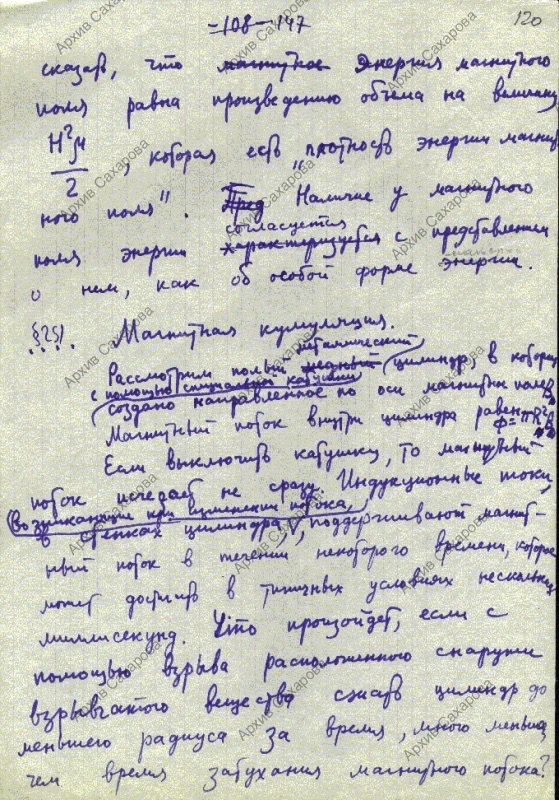 -108-147
120
сказать, что магнитное энергия магнитного
поля равна произведению объема на величину
H²μ/2, которая есть "плотность энергии магнит
ного поля". Пред Наличие у магнитного
согласуется
поля энергии характеризуется с представлением
о нем, как об особой форме материи энергии.
§25. Магнитная кумуляция.
металлический
Рассмотрим полый медный цилиндр, в котором
с помощью специальной катушки
создано направленное по оси магнитное поле B₀
Магнитный поток внутри цилиндра равен Ф=πR²B₀
Если выключить катушку, то магнитный
поток исчезает не сразу. Индукционные токи,
возникающие при изменении потока,
в стенках цилиндра, поддерживают магнит-
ный поток в течении некоторого времени, которое
может достигать в типичных условиях нескольких
миллисекунд. Что произойдет, если с
помощью взрыва расположенного снаружи
взрывчатого вещества сжать цилиндр до
меньшего радиуса за время, много меньшее,
чем время затухания магнитного потока?
Архив Сахарова